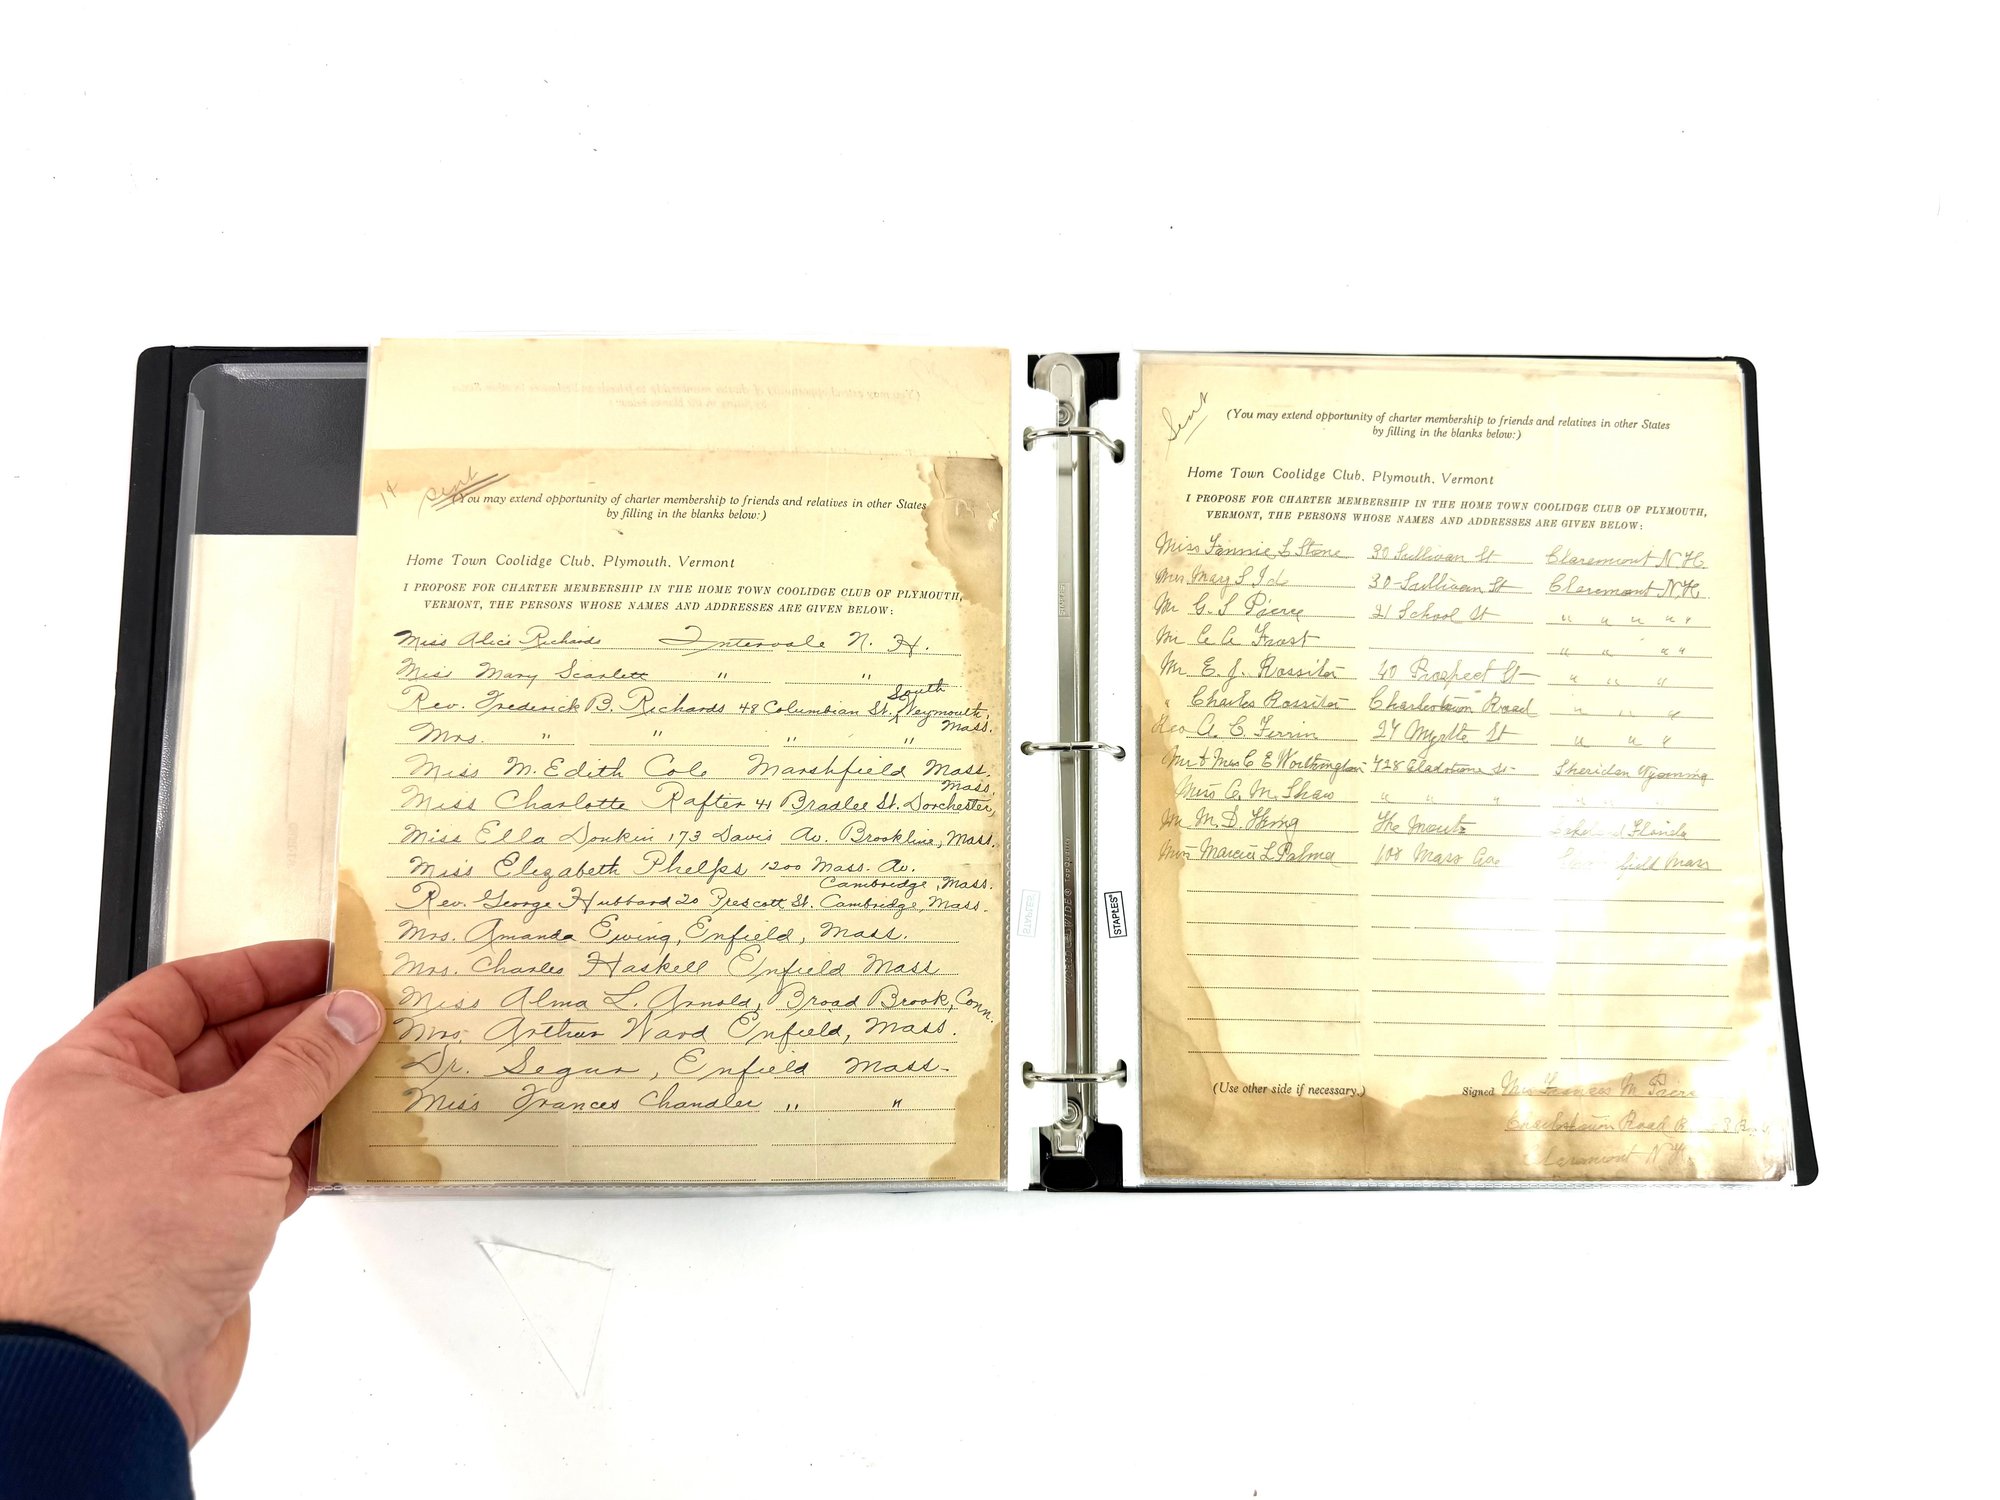 14
Sent
(You may extend opportunity of charter membership to friends and relatives in other States
by filling in the blanks below:)
Home Town Coolidge Club, Plymouth, Vermont
I PROPOSE FOR CHARTER MEMBERSHIP IN THE HOME TOWN COOLIDGE CLUB OF PLYMOUTH,
VERMONT, THE PERSONS WHOSE NAMES AND ADDRESSES ARE GIVEN BELOW:
Miss Alice Richards Intervale N. H.
Miss Mary Scarlett " "
Rev. Frederick B. Richards 48 Columbian St. South Weymouth, Mass.
Mrs. " " " "
Miss M. Edith Cole Marshfield Mass.
Miss Charlotte Rafter 41 Bradlee St. Dorchester, Mass.
Miss Ella Donkin 173 Davis Av. Brookline, Mass.
Miss Elizabeth Phelps 1200 Mass. Av. Cambridge, Mass.
Rev. George Hubbard 20 Prescott St. Cambridge, Mass.
Mrs. Amanda Ewing, Enfield, Mass.
Mrs. Charles Haskell Enfield Mass
Miss Alma L. Arnold, Broad Brook, Conn.
Mrs. Arthur Ward Enfield, Mass.
Dr. Segur, Enfield Mass.
Miss Frances Chandler " "
STAPLES
Sent
(You may extend opportunity of charter membership to friends and relatives in other States
by filling in the blanks below:)
Home Town Coolidge Club, Plymouth, Vermont
I PROPOSE FOR CHARTER MEMBERSHIP IN THE HOME TOWN COOLIDGE CLUB OF PLYMOUTH,
VERMONT, THE PERSONS WHOSE NAMES AND ADDRESSES ARE GIVEN BELOW:
Miss Fannie L Stone 30 Sullivan St Claremont N.H.
Mrs. Mary S Ide 30 Sullivan St Claremont N.H.
Mr G. S Pierce 21 School St " " " " "
Mr C. A. Frost " " " "
Mr E. J. Rossiter 40 Prospect St " " "
" Charles Rossiter Charlestown Road " " "
A. C. Ferrin 24 Myrtle St " " "
Mr & Mrs C E Worthington 428 Gladstone St Sheridan Wyoming
Miss C. M. Shaw " " " " " "
M. D. The Florida
Mrs Marcia L Palmer 108 Mass Ave field Mass
(Use other side if necessary.) Signed Mrs Frances M Pierce
Charlestown Road
Claremont N.H.